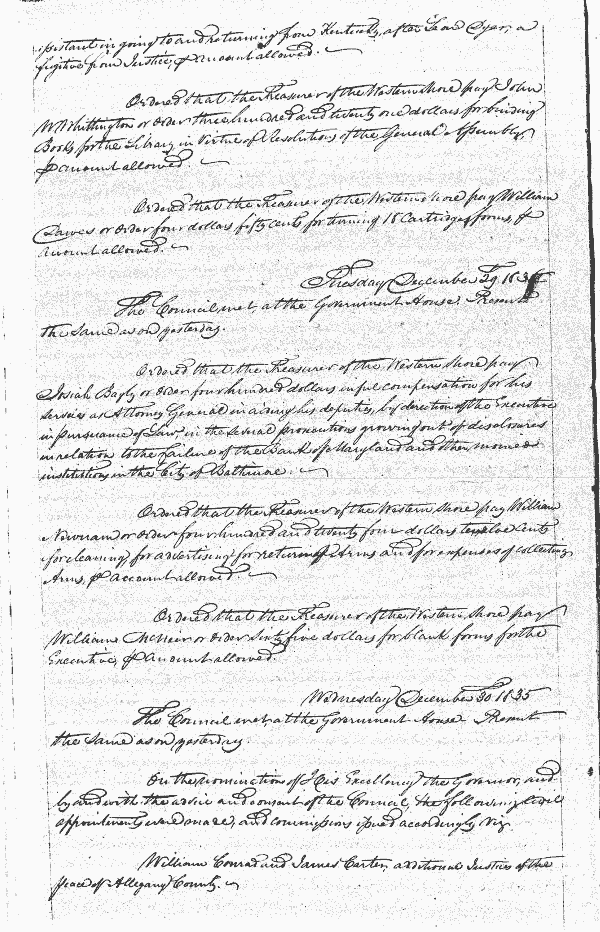 assistant in going to and returning from Kentucky, after Leand Dyer, a
fugitive from Justice, pr amount allowed.
Ordered that the Treasurer of the Western shore pay John
W Whittington or order three hundred and twenty one dollars for binding
Books for the Library in virtue of Resolutions of the General Assembly
pr amount allowed
Ordered that the Treasurer of the Western shore pay William
or order four dollars fifty cents for turning 18 Cartridge forms, pr
amount allowed.
Tuesday December 29 183
The Council met at the Government House. Present
the same as on yesterday.
Ordered that the Treasurer of the Western shore pay
Josiah Bayly or order four hundred dollars in full compensation for his
services as Attorney General in aiding his deputies, by direction of the Executive
in pursuance of Law, in the several prosecutions growing out of disclosures
in relation to the failure of the Bank of Maryland and other monied
institutions in the City of Baltimore.
Ordered that the Treasurer of the Western shore pay William
Newnam or order four hundred and twenty four dollars twelve Cents
for cleaning, for advertising for return of Arms and for expenses of collecting
Arms, pr account allowed.
Ordered that the Treasurer of the Western shore pay
William McNeir or order sixty five dollars for blank forms for the
Executive, pr amount allowed.
Wednesday December 30 1835
The Council met at the Government House Present
the same as on yesterday.
On the nomination of His Excellency the Governor, and
by and with the advice and consent of the Council, the following civil
appointments were made, and commissions issued accordingly Viz.
William Conrad and James Carter, additional Justices of the
peace of Allegany County.